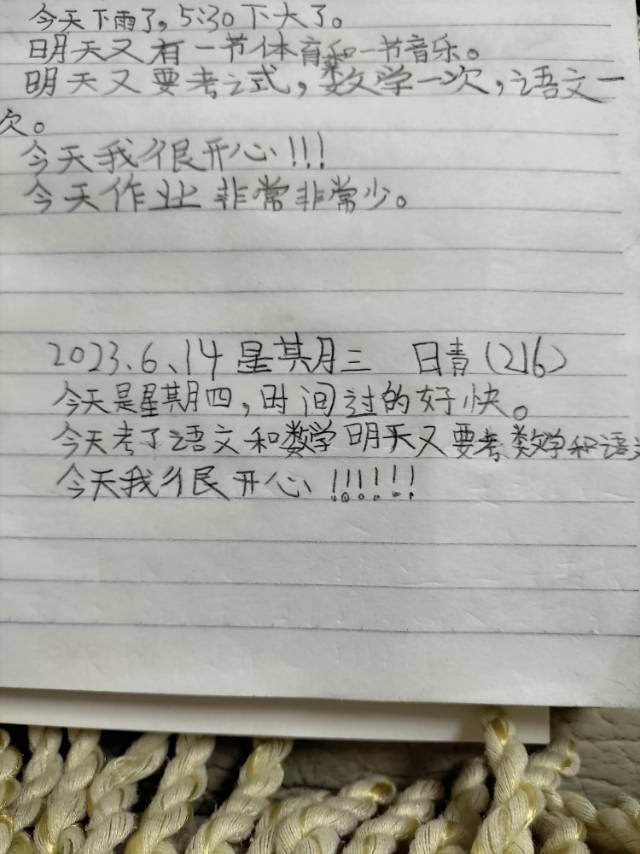 今天下雨了，5:30下大了。
明天又有一节体育和一节音乐。
明天又要考之式，数学一次，语文一
次。
今天我很开心!!!
今天作业非常非常少。
2023.6.14星其月三 日青(216)
今天是星期四，时间过的好快。
今天考了语文和数学明天又要考数学和语文
今天我很开心!!!!!!